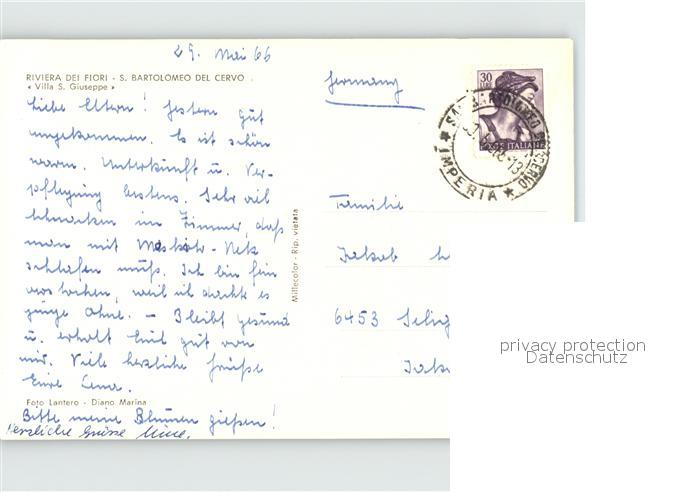 29. Mai 66
RIVIERA DEI FIORI - S. BARTOLOMEO DEL CERVO
« Villa S. Giuseppe »
Germany
30
LIRE
POSTE ITALIANE
SAN BARTOLOMEO
IMPERIA
Liebe Eltern! Gestern gut
angekommen. Es ist schön
warm. Unterkunft u. Ver-
pflegung bestens. Sehr viel
Schnacken im Zimmer, daß
man mit Moskito-Netz
schlafen muß. Ich bin fein
verstochen, weil ich dachte es
ginge ohne. - Bleibt gesund
u. erholt Euch gut von
mir. Viele herzliche Grüße
Eure Lena.
Foto Lantero - Diano Marina
Bitte meine Blumen gießen!
Herzliche Grüsse
Millecolor - Rip. vietata
Familie
Jakob
6453 Selig
privacy protection
Datenschutz